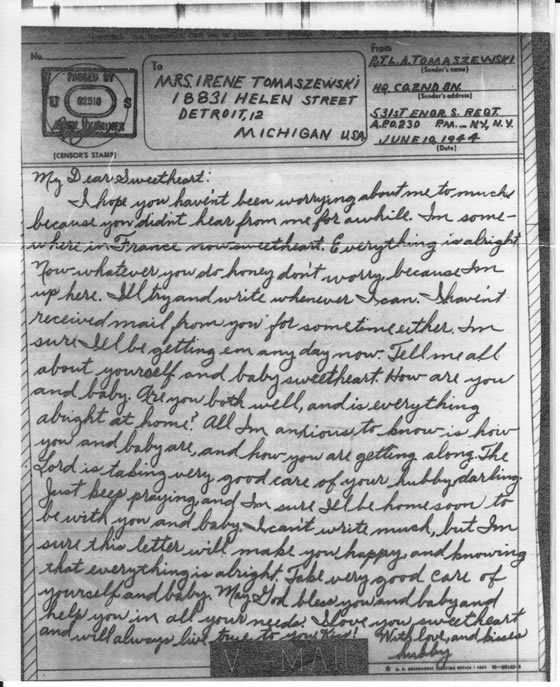 No.
PASSED BY
U S
02510
ARMY EXAMINER
(CENSOR'S STAMP)
To
MRS. IRENE TOMASZEWSKI
18831 HELEN STREET
DETROIT, 12
MICHIGAN USA
From
PVT. L.A. TOMASZEWSKI
(Sender's name)
HQ. CO. 2ND. BN.
(Sender's address)
531ST ENGR. S. REGT.
A.P.O. 230 P.M. - N.Y., N.Y.
JUNE 10, 1944
(Date)
My Dear Sweetheart:
I hope you haven't been worrying about me to much
because you didn't hear from me for awhill. Im some-
where in France now sweetheart. Everything is alright
Now whatever you do honey don't worry, because Im
up here. I'll try and write whenever I can. I haven't
received mail from you for sometime either. Im
sure I'll be getting em any day now. Tell me all
about yourself and baby sweetheart. How are you
and baby. Are you both well, and is everything
alright at home? All Im anxious to know is how
you and baby are, and how you are getting along. The
Lord is taking very good care of your hubby, darling.
Just keep praying, and Im sure I'll be home soon to
be with you and baby. I can't write much, but Im
sure this letter will make you happy, and knowing
that everything is alright. Take very good care of
yourself and baby. May God bless you and baby and
help you in all your needs. I love you sweetheart
and will always live true to you
With love, and kisses
hubby
V-MAIL